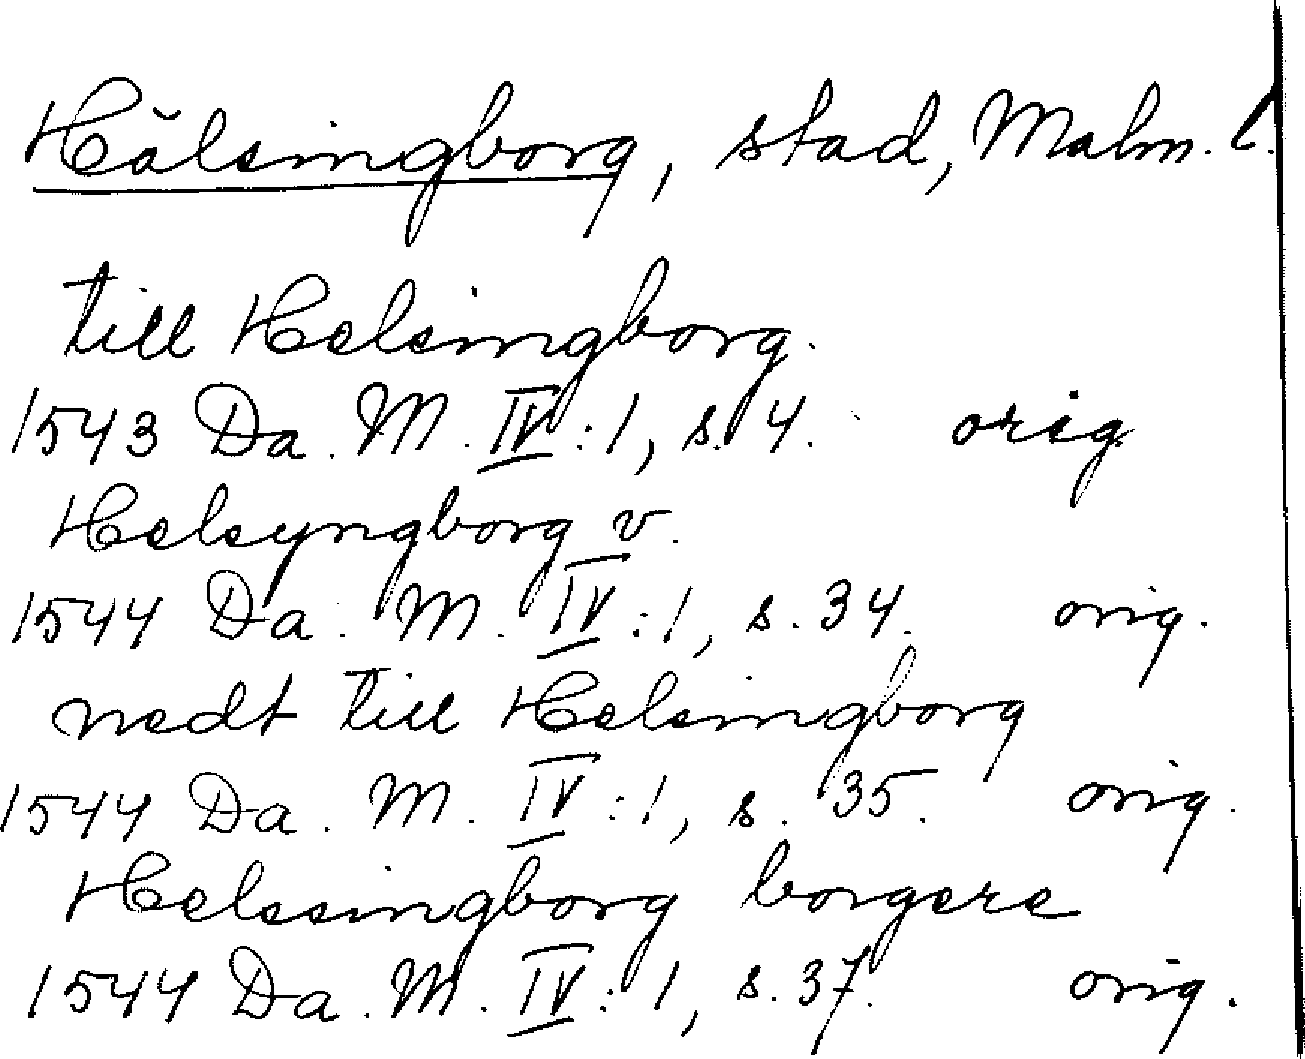 Hälsingborg, stad, Malm. l.
till Helsingborg.
1543 Da. M. IV:1, s. 4. orig.
Helsyngborg v.
1544 Da. M. IV:1, s. 34. orig.
nedt till Helsingborg
1544 Da. M. IV:1, s. 35. orig.
Helssingborg borgere
1544 Da. M. IV:1, s. 37. orig.